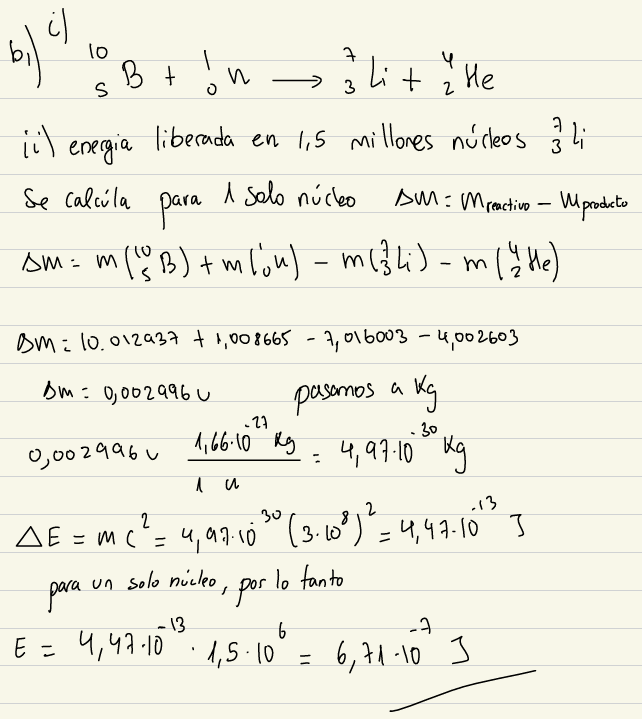 b) i) ¹⁰₅B + ¹₀n ⟶ ⁷₃Li + ⁴₂He
ii) energia liberada en 1,5 millones núcleos ⁷₃Li
Se calcúla para 1 solo núcleo Δm = m reactivo − m producto
Δm = m(¹⁰₅B) + m(¹₀n) − m(⁷₃Li) − m(⁴₂He)
Δm = 10.012937 + 1,008665 − 7,016003 − 4,002603
Δm = 0,002996 u pasamos a Kg
0,002996 u 1,66·10⁻²⁷ Kg / 1 u = 4,97·10⁻³⁰ Kg
ΔE = m c² = 4,97·10⁻³⁰ (3·10⁸)² = 4,47·10⁻¹³ J
para un solo núcleo, por lo tanto
E = 4,47·10⁻¹³ · 1,5·10⁶ = 6,71·10⁻⁷ J